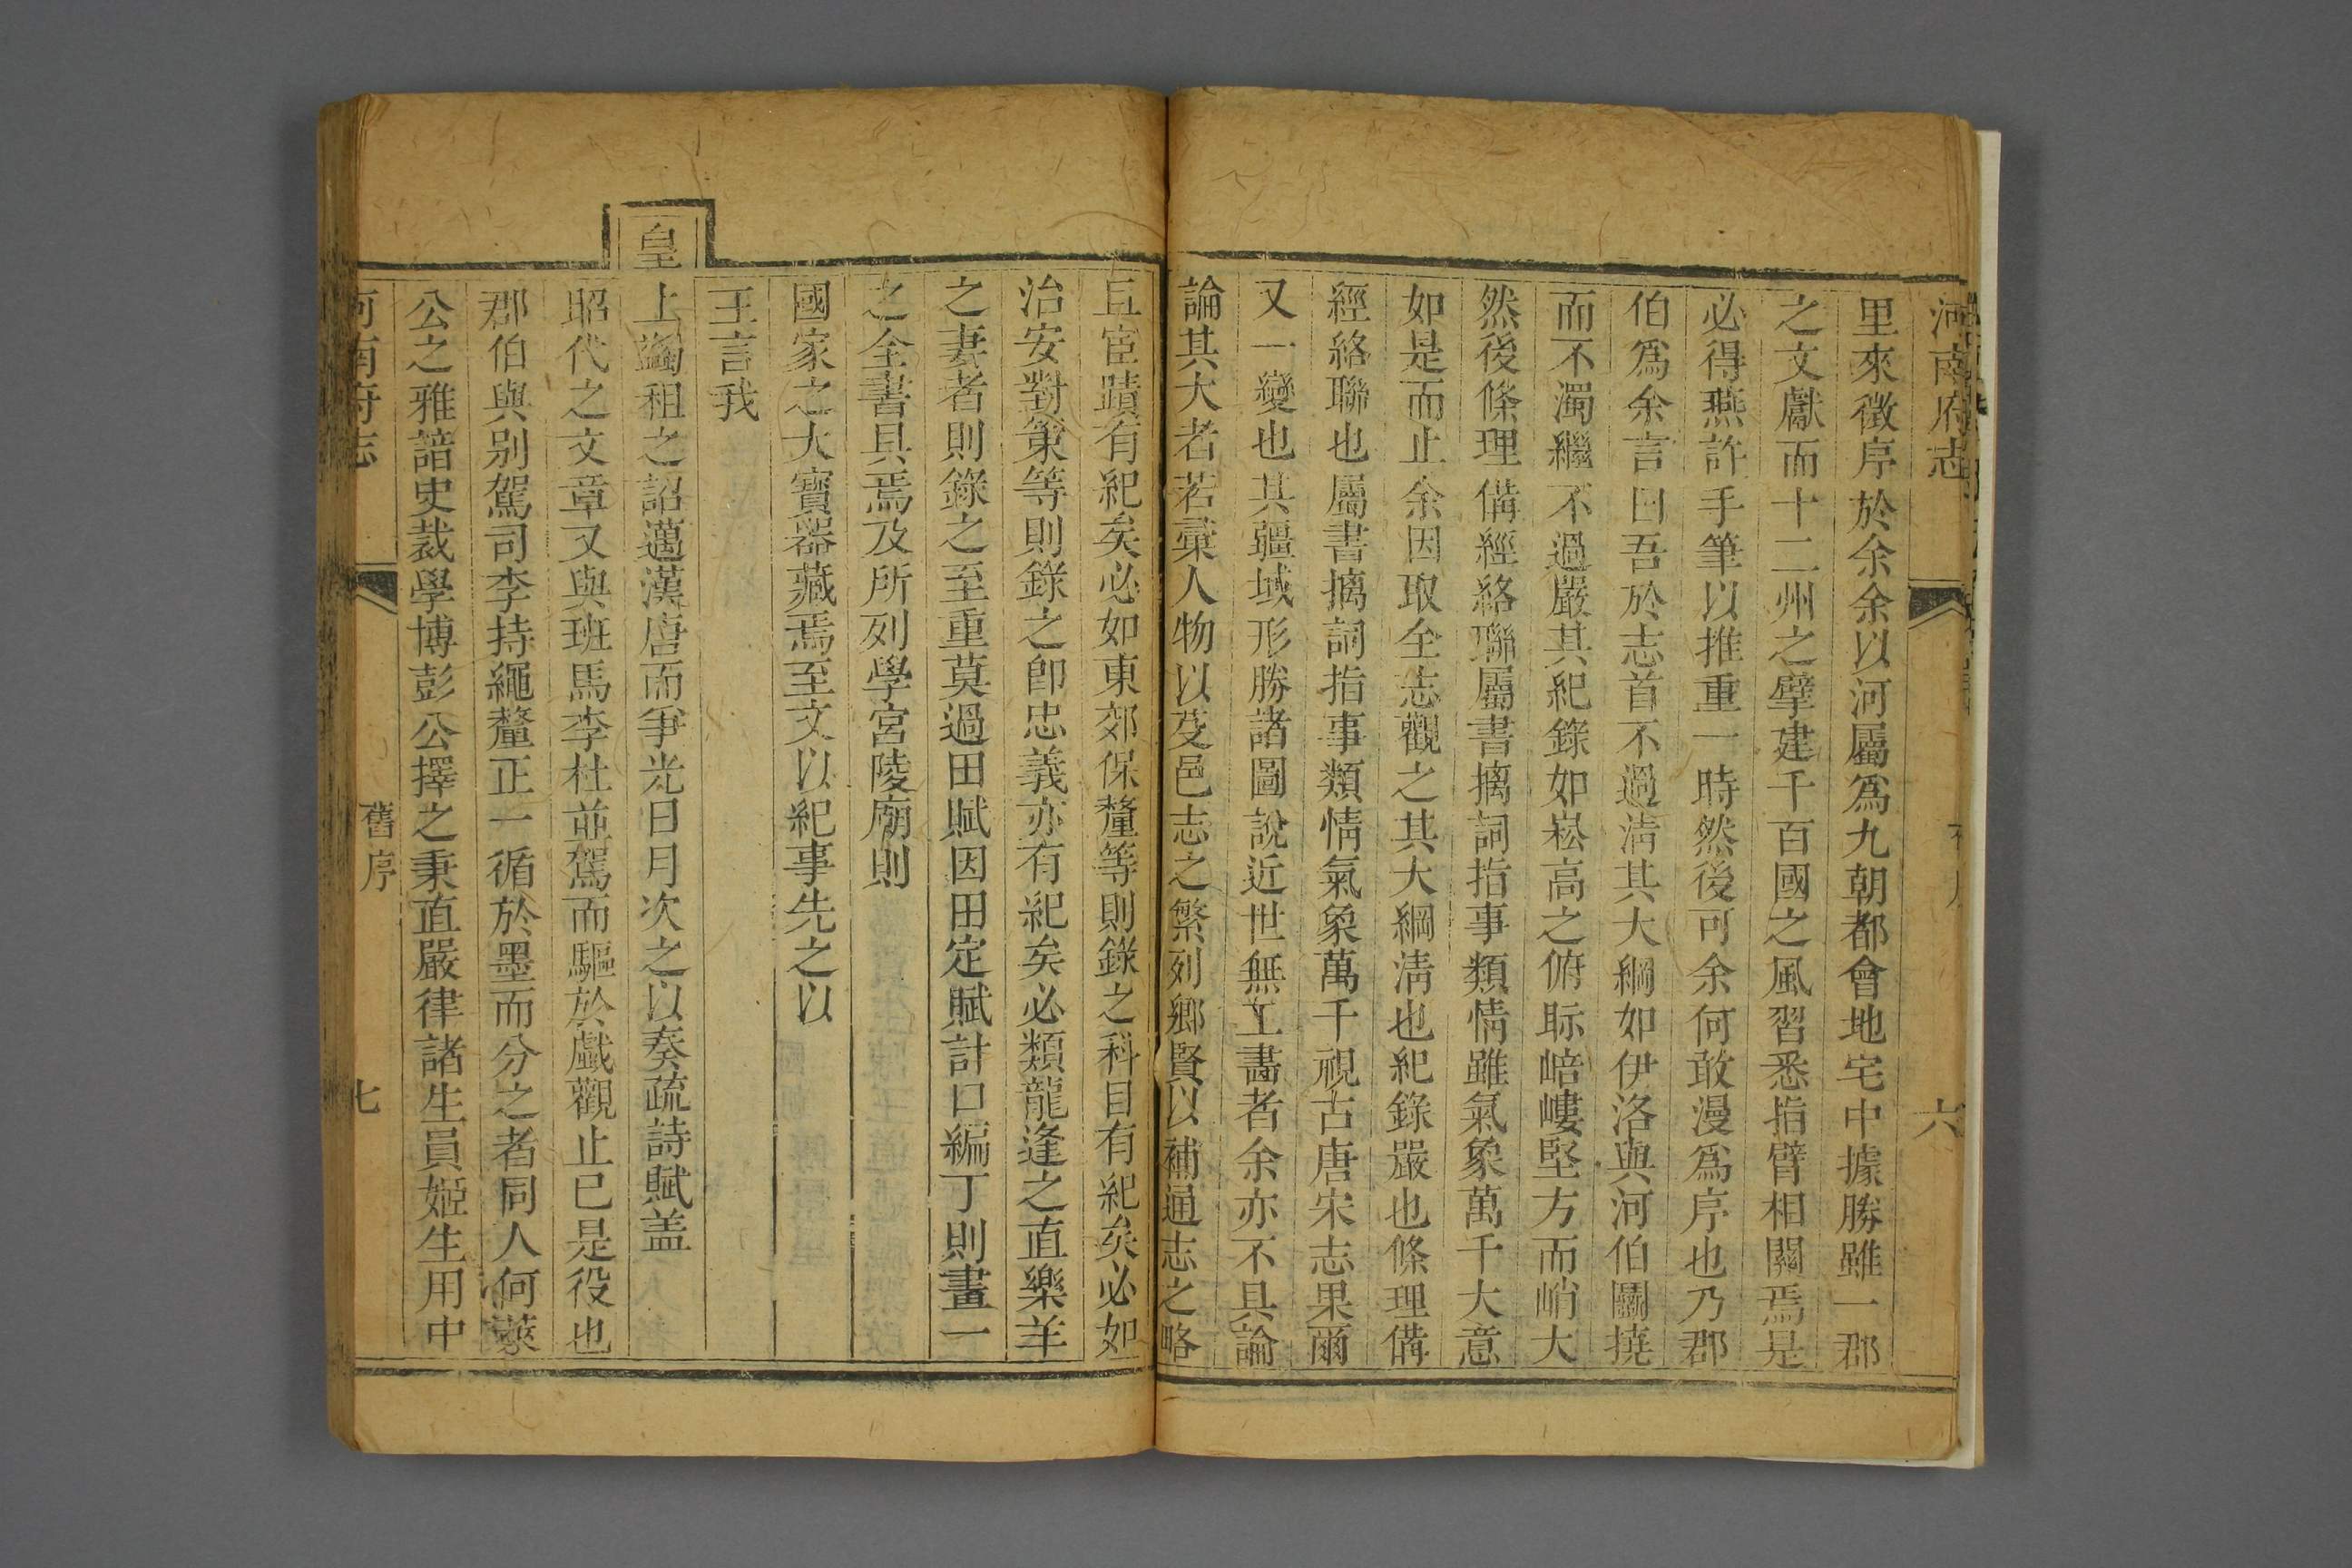 河南府志
六
里來徵序於余余以河屬爲九朝都會地宅中據勝雖一郡
之文獻而十二州之擘建千百國之風習悉指臂相關焉是
必得燕許手筆以推重一時然後可余何敢漫爲序也乃郡
伯爲余言曰吾於志首不過淸其大綱如伊洛與河伯鬭撓
而不濁繼不過嚴其紀錄如崧高之俯眎㟝嶁堅方而峭大
然後條理偹經絡聯屬書摛詞指事類情雖氣象萬千大意
如是而止余因取全志觀之其大綱淸也紀錄嚴也條理偹
經絡聯也屬書摛詞指事類情氣象萬千視古唐宋志果爾
又一變也其疆域形勝諸圖說近世無工畵者余亦不具論
論其大者若彚人物以芟邑志之繁列鄉賢以補通志之略
巨宦蹟有紀矣必如東郊保釐等則錄之科目有紀矣必如
治安對策等則錄之卽忠義亦有紀矣必類龍逢之直樂羊
之妻者則錄之至重莫過田賦因田定賦計口編丁則畫一
之全書具焉及所列學宮陵廟則
國家之大寶器藏焉至文以紀事先之以
王言我
皇上蠲租之詔邁漢唐而爭光日月次之以奏疏詩賦盖
昭代之文章又與班馬李杜並駕而驅於戯觀止已是役也
郡伯與别駕司李持繩釐正一循於墨而分之者同人何蓘
公之雅諳史裁學博彭公擇之秉直嚴律諸生員姬生用中
河南府志
舊序
七